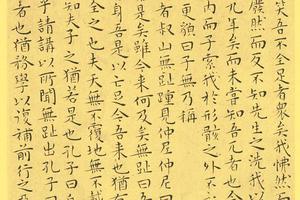 笑吾不全足者衆矣我怫然
廢然而反不知先生之洗我以
九年矣而未嘗知吾兀者也今
內而子索我於形骸之外不
更貌曰子無乃稱
者叔山無趾踵見仲尼仲尼曰
是矣雖今来何及矣無趾曰吾
身吾是以亡足今吾来也猶有
全之也夫天無不覆地無不載
知夫子之猶若是也孔子曰
乎請講以所聞無趾出孔子曰
者也猶務學以復補前行之